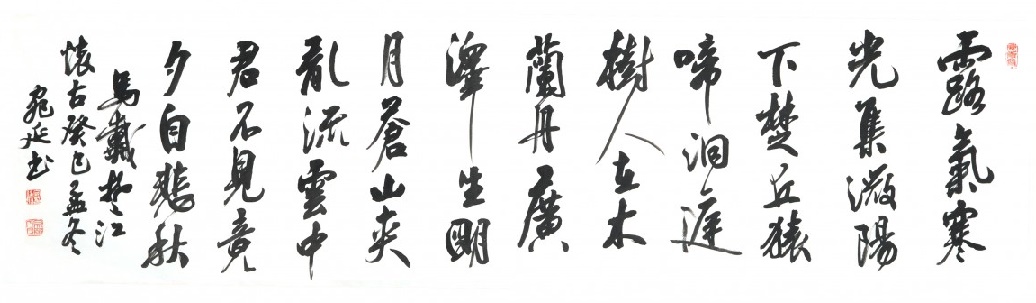 露氣寒
光集微陽
下楚丘猿
啼洞庭
樹人在木
蘭舟廣
澤生明
月蒼山夾
亂流雲中
君不見竟
夕自悲秋
馬戴楚江
懷古癸巳孟冬
延书